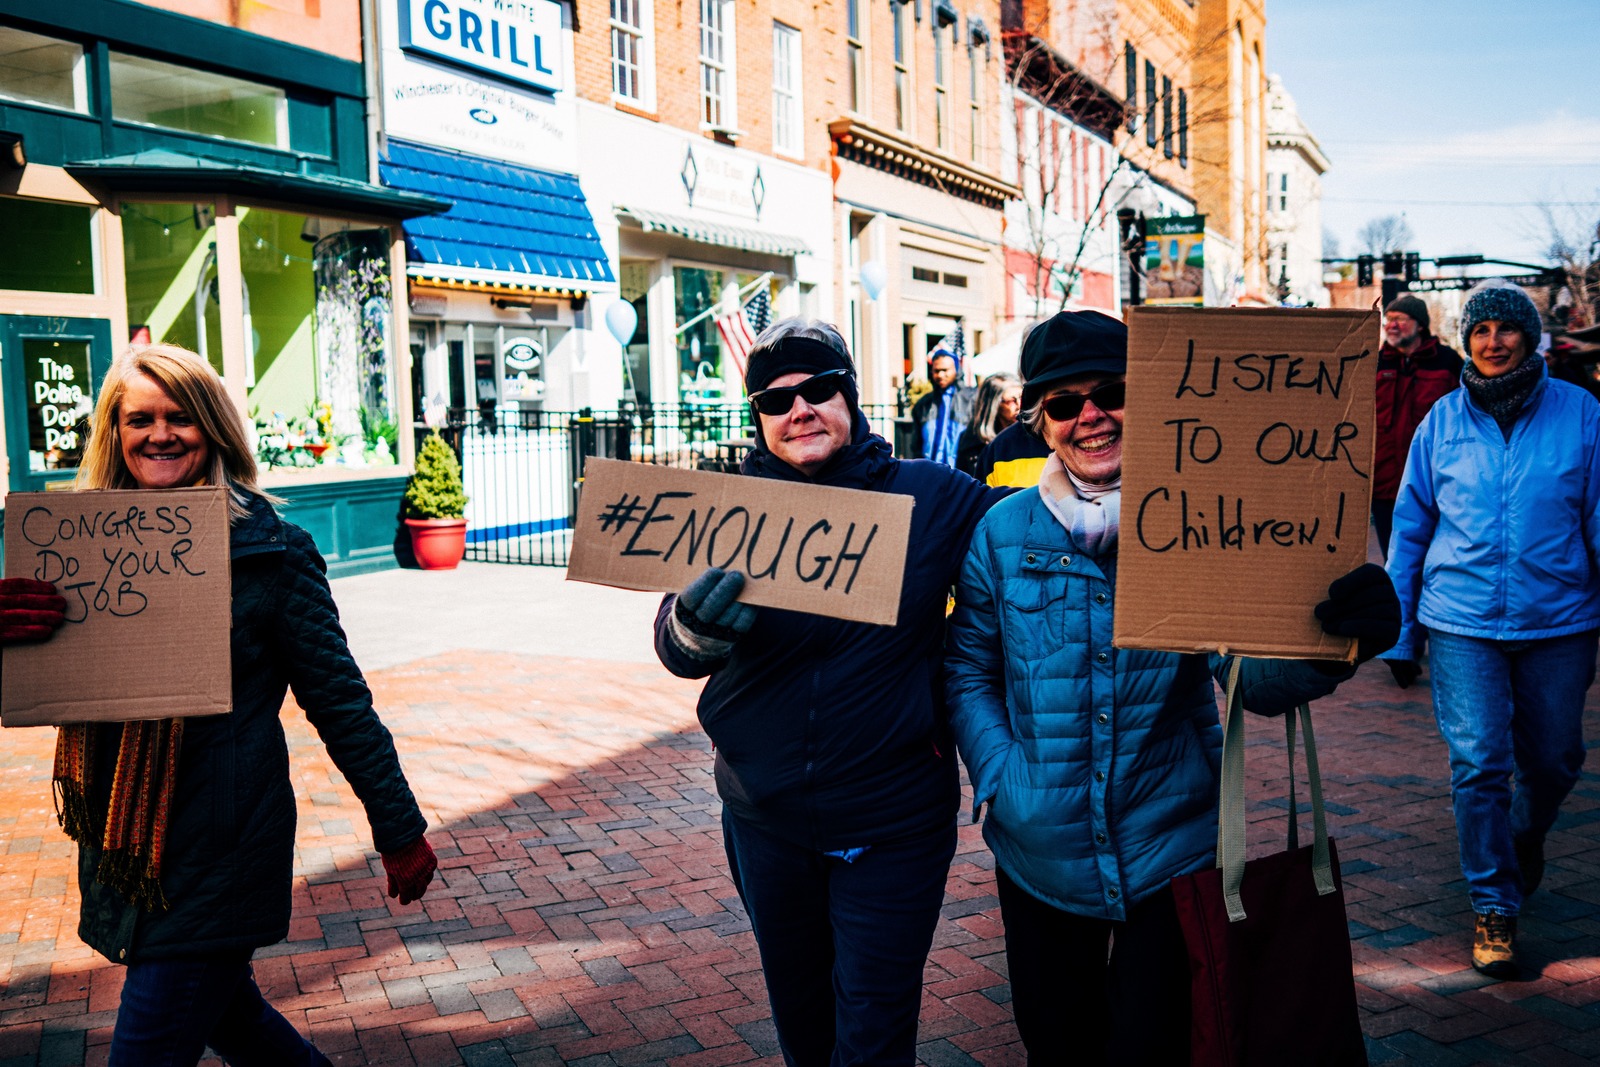 WHITE
GRILL
Winchester's Original Burger Joint
157
The
Polka
Dot
Pot
CONGRESS
DO YOUR
JOB
#ENOUGH
LISTEN
TO OUR
Children!